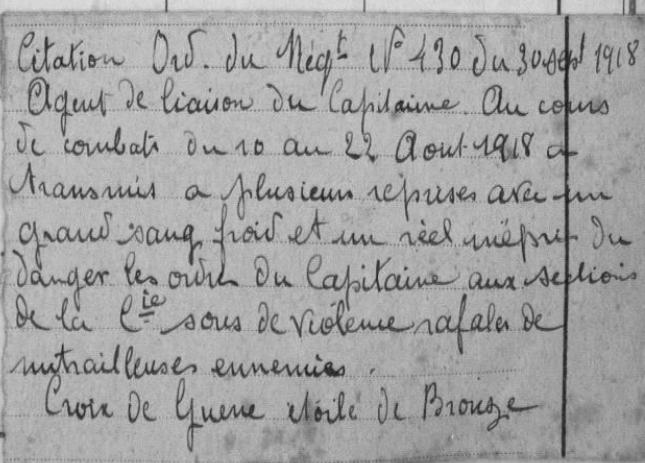 Citation Ord. du Régt N° 430 du 30 sept 1918
Agent de liaison du Capitaine. Au cours
de combats du 10 au 22 Aout 1918 a
transmis a plusieurs reprises avec un
grand sang froid et un réel mépris du
danger les ordres du Capitaine aux sections
de la Cie sous de violence rafales de
mitrailleuses ennemies.
Croix de Guerre étoile de Bronze